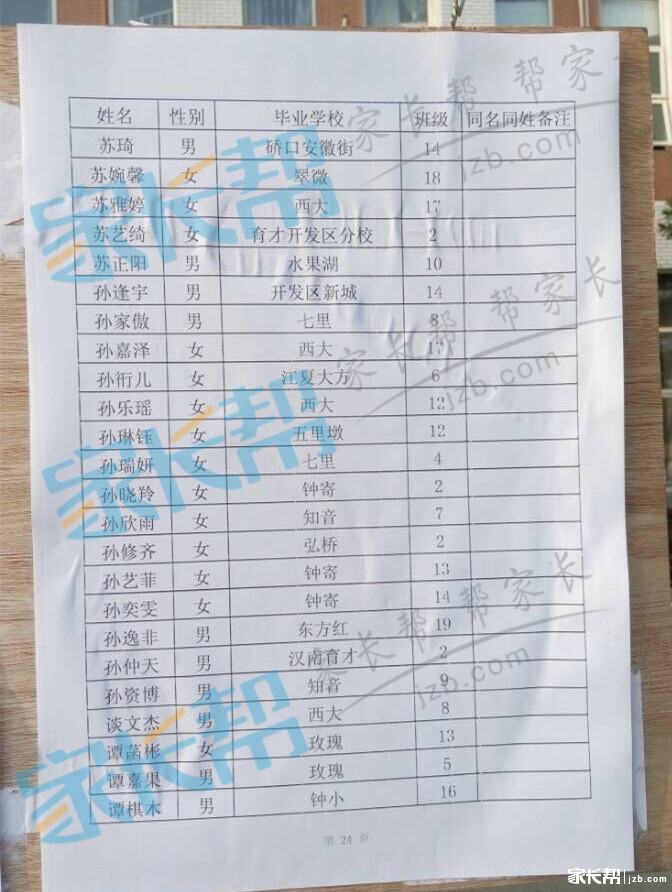 姓名 性别 毕业学校 班级 同名同姓备注
苏琦 男 硚口安徽街 14
苏婉馨 女 翠微 18
苏雅婷 女 西大 17
苏艺绮 女 育才开发区分校 2
苏正阳 男 水果湖 10
孙逢宇 男 开发区新城 14
孙家傲 男 七里 8
孙嘉泽 女 西大 17
孙衍儿 女 江夏大方 6
孙乐瑶 女 西大 12
孙琳钰 女 五里墩 12
孙瑞妍 女 七里 4
孙晓羚 女 钟寄 2
孙欣雨 女 知音 7
孙修齐 女 弘桥 2
孙艺菲 女 钟寄 13
孙奕雯 女 钟寄 14
孙逸非 男 东方红 19
孙仲天 男 汉南育才 2
孙资博 男 知音 9
谈文杰 男 西大 8
谭菡彬 女 玫瑰 13
谭嘉果 男 玫瑰 5
谭棋木 男 钟小 16
第 24 页
家长帮
家长帮
家长帮
家长帮 帮家长
jzb.com
家长帮 帮家长
jzb.com
家长帮 帮家长
jzb.com
家长帮 jzb.com